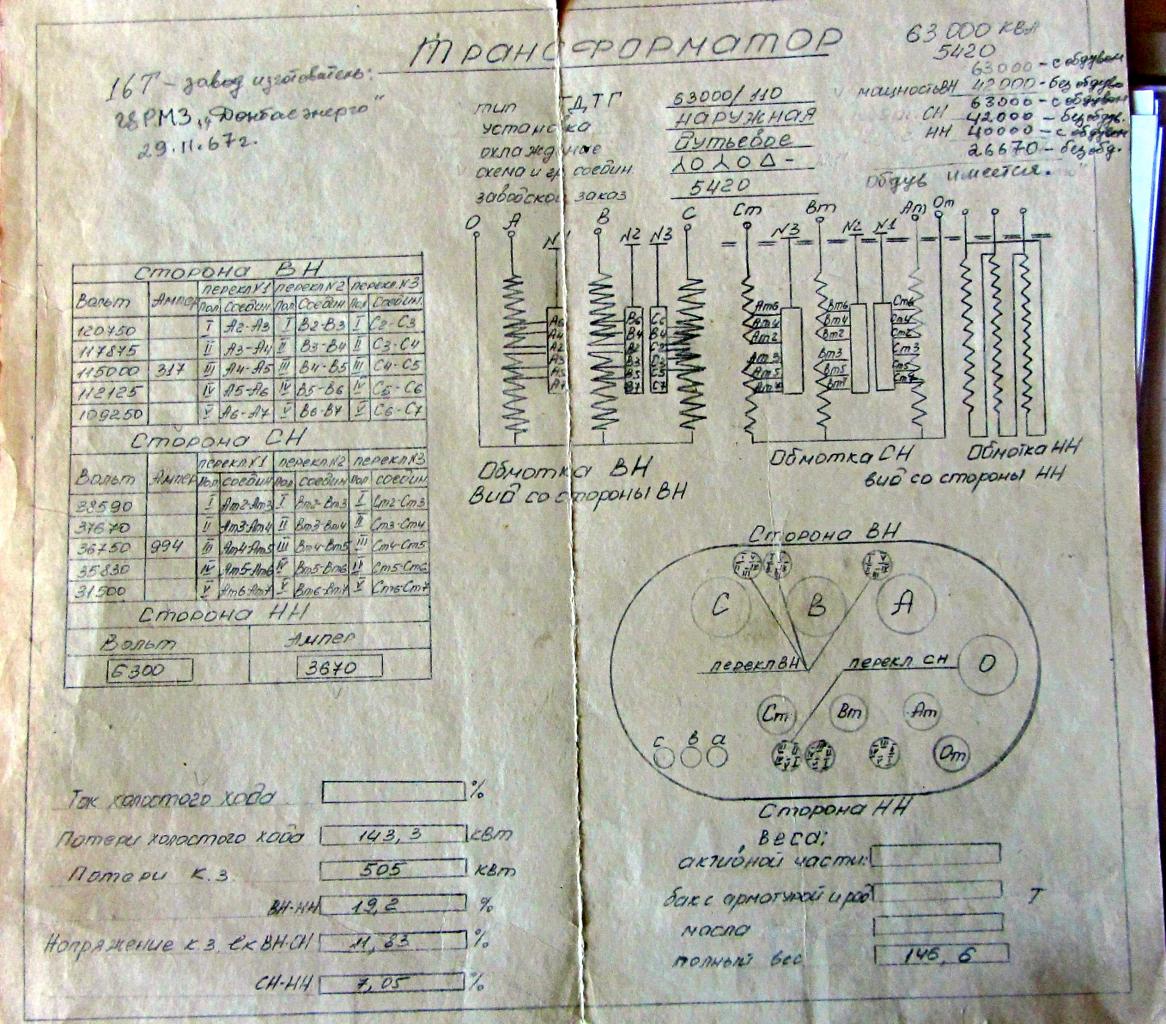 Трансформатор
63 000 КВА
5420
16Т – завод изготовитель:
ЦРМЗ „Донбасэнерго"
29.11.67г.
тип ТД,ТГ 63000/110
установка наружная
охлаждение Дутьевое
схема и гр соедин.
заводской заказ 5420
63000 - с обдувом
мощность ВН 42000 - без обдув
63000 - с обдувом
СН 42000 - без обдув.
НН 40000 - с обдувом
26670 - без обд.
Обдув имеется.
O A B C Cm Bm Am Om
N1 N2 N3 N3 N2 N1
A6 B6 C6 Am6 Bm6 Cm6
A4 B4 C4 Am4 Bm4 Cm4
A2 B2 C2 Am2 Bm2 Cm2
A3 B3 C3 Am3 Bm3 Cm3
A5 B5 C5 Am5 Bm5 Cm5
A7 B7 C7 Am7 Bm7 Cm7
Обмотка ВН
Вид со стороны ВН
Обмотка СН
Обмотка НН
вид со стороны НН
Сторона ВН
Вольт Ампер перекл N1 перекл N2 перекл. N3
Пол Соедин Пол Соедин Пол Соедин.
120750 I A2-A3 I B2-B3 I C2-C3
117875 II A3-A4 II B3-B4 II C3-C4
115000 317 III A4-A5 III B4-B5 III C4-C5
112125 IV A5-A6 IV B5-B6 IV C5-C6
109250 V A6-A7 V B6-B7 V C6-C7
Сторона СН
Вольт Ампер перекл N1 перекл N2 перекл N3
Пол соедин Пол соедин Пол соедин.
38590 I Am2-Am3 I Bm2-Bm3 I Cm2-Cm3
37670 II Am3-Am4 II Bm3-Bm4 II Cm3-Cm4
36750 994 III Am4-Am5 III Bm4-Bm5 III Cm4-Cm5
35830 IV Am5-Am6 IV Bm5-Bm6 Cm5-Cm6
31500 V Am6-Am7 V Bm6-Bm7 V Cm6-Cm7
Сторона НН
Вольт Ампер
6300 3670
Сторона ВН
C B A
перекл ВН перекл СН O
Cm Bm Am
c в a
Om
Сторона НН
Ток холостого хода %
Потери холостого хода 143,3 квт
Потери к.з. 505 квт
ВН-НН 19,2 %
Напряжение к.з. ек ВН-СН 11,83 %
СН-НН 7,05 %
веса:
активной части:
бак с арматурой и рад Т
масла
полный вес 146,6